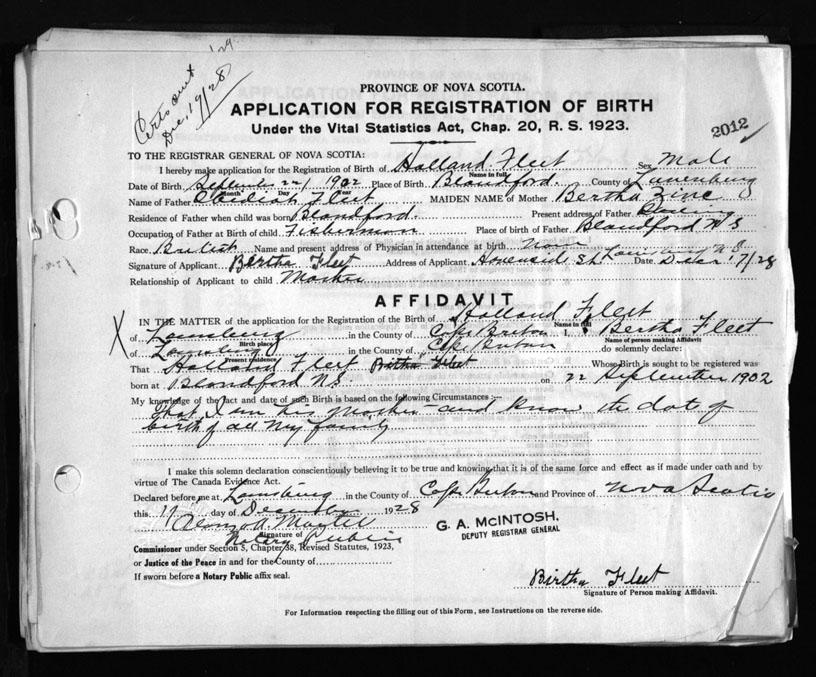 '29
Certs sent
Dec. 19/28
PROVINCE OF NOVA SCOTIA.
APPLICATION FOR REGISTRATION OF BIRTH
Under the Vital Statistics Act, Chap. 20, R. S. 1923.
2012
TO THE REGISTRAR GENERAL OF NOVA SCOTIA:
I hereby make application for the Registration of Birth of Holland Fleet Sex Male
Name in full
Date of Birth September 22/ 1902 Place of Birth Blandford. County of Lunenburg
Month Day Year
Name of Father Obediah Fleet MAIDEN NAME of Mother Bertha Zinc
Residence of Father when child was born Blandford. Present address of Father
Occupation of Father at Birth of child Fisherman Place of birth of Father Blandford N S
Race British Name and present address of Physician in attendance at birth None
Signature of Applicant Bertha Fleet Address of Applicant St Louisburg N.S. Date Decr 17/28
Relationship of Applicant to child Mother
AFFIDAVIT
IN THE MATTER of the application for the Registration of the Birth of Holland Fleet
Name in full
X of Louisburg in the County of Cape Breton I, Bertha Fleet
Birth place Name of person making Affidavit
of Louisburg in the County of Cape Breton do solemnly declare:
Present residence
That Holland Fleet Bertha Fleet Whose Birth is sought to be registered was
born at Blandford NS on 22 September 1902
My knowledge of the fact and date of such Birth is based on the following Circumstances
That I am his Mother and know the date of
birth of all my family
I make this solemn declaration conscientiously believing it to be true and knowing that it is of the same force and effect as if made under oath and by
virtue of The Canada Evidence Act.
Declared before me at Louisburg in the County of Cape Breton and Province of Nova Scotia
this 17 day of December 1928
Signature of
Notary Public
G. A. McINTOSH,
DEPUTY REGISTRAR GENERAL
Commissioner under Section 5, Chapter 38, Revised Statutes, 1923,
or Justice of the Peace in and for the County of
If sworn before a Notary Public affix seal.
Birtha Fleet
Signature of Person making Affidavit.
For Information respecting the filling out of this Form, see Instructions on the reverse side.